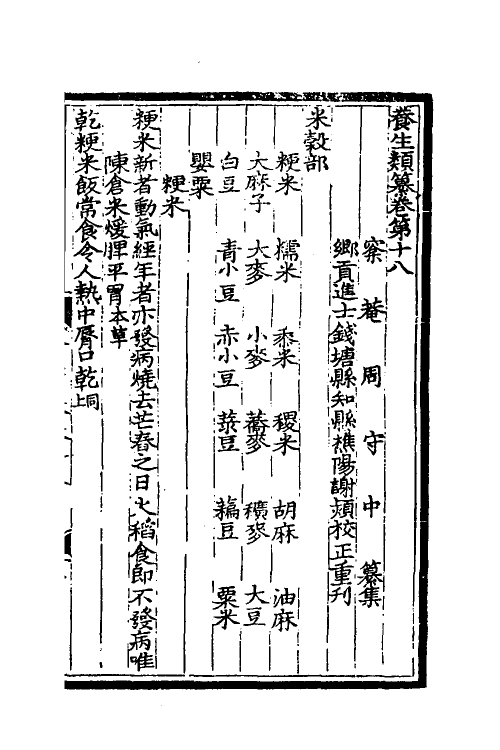 養生類纂卷第十八
窾菴周守中纂集
鄉貢進士錢塘縣知縣樵陽謝熲校正重刋
米穀部
粳米 糯米 黍米 稷米 胡麻 油麻
大麻子 大麥 小麥 蕎麥 穬麥 大豆
白豆 青小豆 赤小豆 菉豆 藊豆 粟米
罌粟
粳米
粳米新者動氣經年者亦發病燒去芒舂之日火稻食即不發病唯
陳倉米煖脾平胃本草
乾粳米飯常食令人熱中脣口乾同上